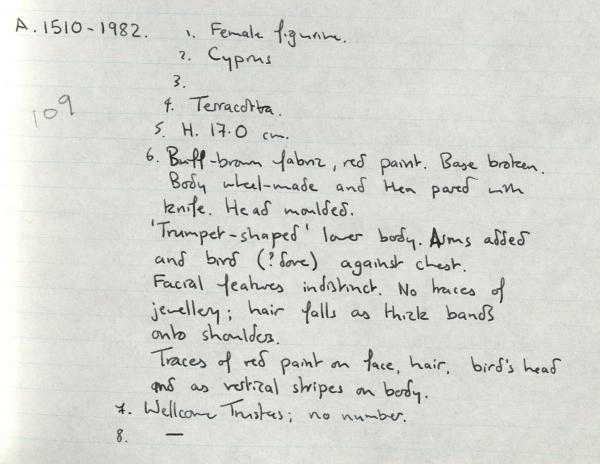 A. 1510-1982. 1. Female figurine.
2. Cyprus
3.
109
4. Terracotta.
5. H. 17.0 cm.
6. Buff-brown fabric, red paint. Base broken.
Body wheel-made and then pared with
knife. Head moulded.
'Trumpet-shaped' lower body. Arms added
and bird (? dove) against chest.
Facial features indistinct. No traces of
jewellery; hair falls as thick bands
onto shoulders.
Traces of red paint on face, hair, bird's head
and as vertical stripes on body.
7. Wellcome Trustees; no number.
8. —